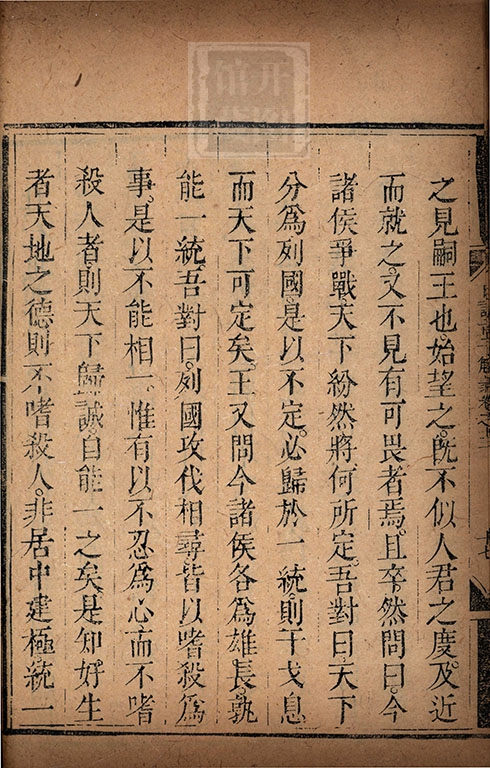 之見嗣王也。始望之。既不似人君之度。及近
而就之。又不見有可畏者焉。且卒然問曰。今
諸侯爭戰。天下紛然。將何所定。吾對曰。天下
分爲列國。是以不定。必歸於一統。則干戈息
而天下可定矣。王又問今諸侯各爲雄長。孰
能一統。吾對曰。列國攻伐相尋。皆以嗜殺爲
事。是以不能相一。惟有以不忍爲心。而不嗜
殺人者。則天下歸誠。自能一之矣。是知好生
者天地之德。則不嗜殺人。非居中建極統一